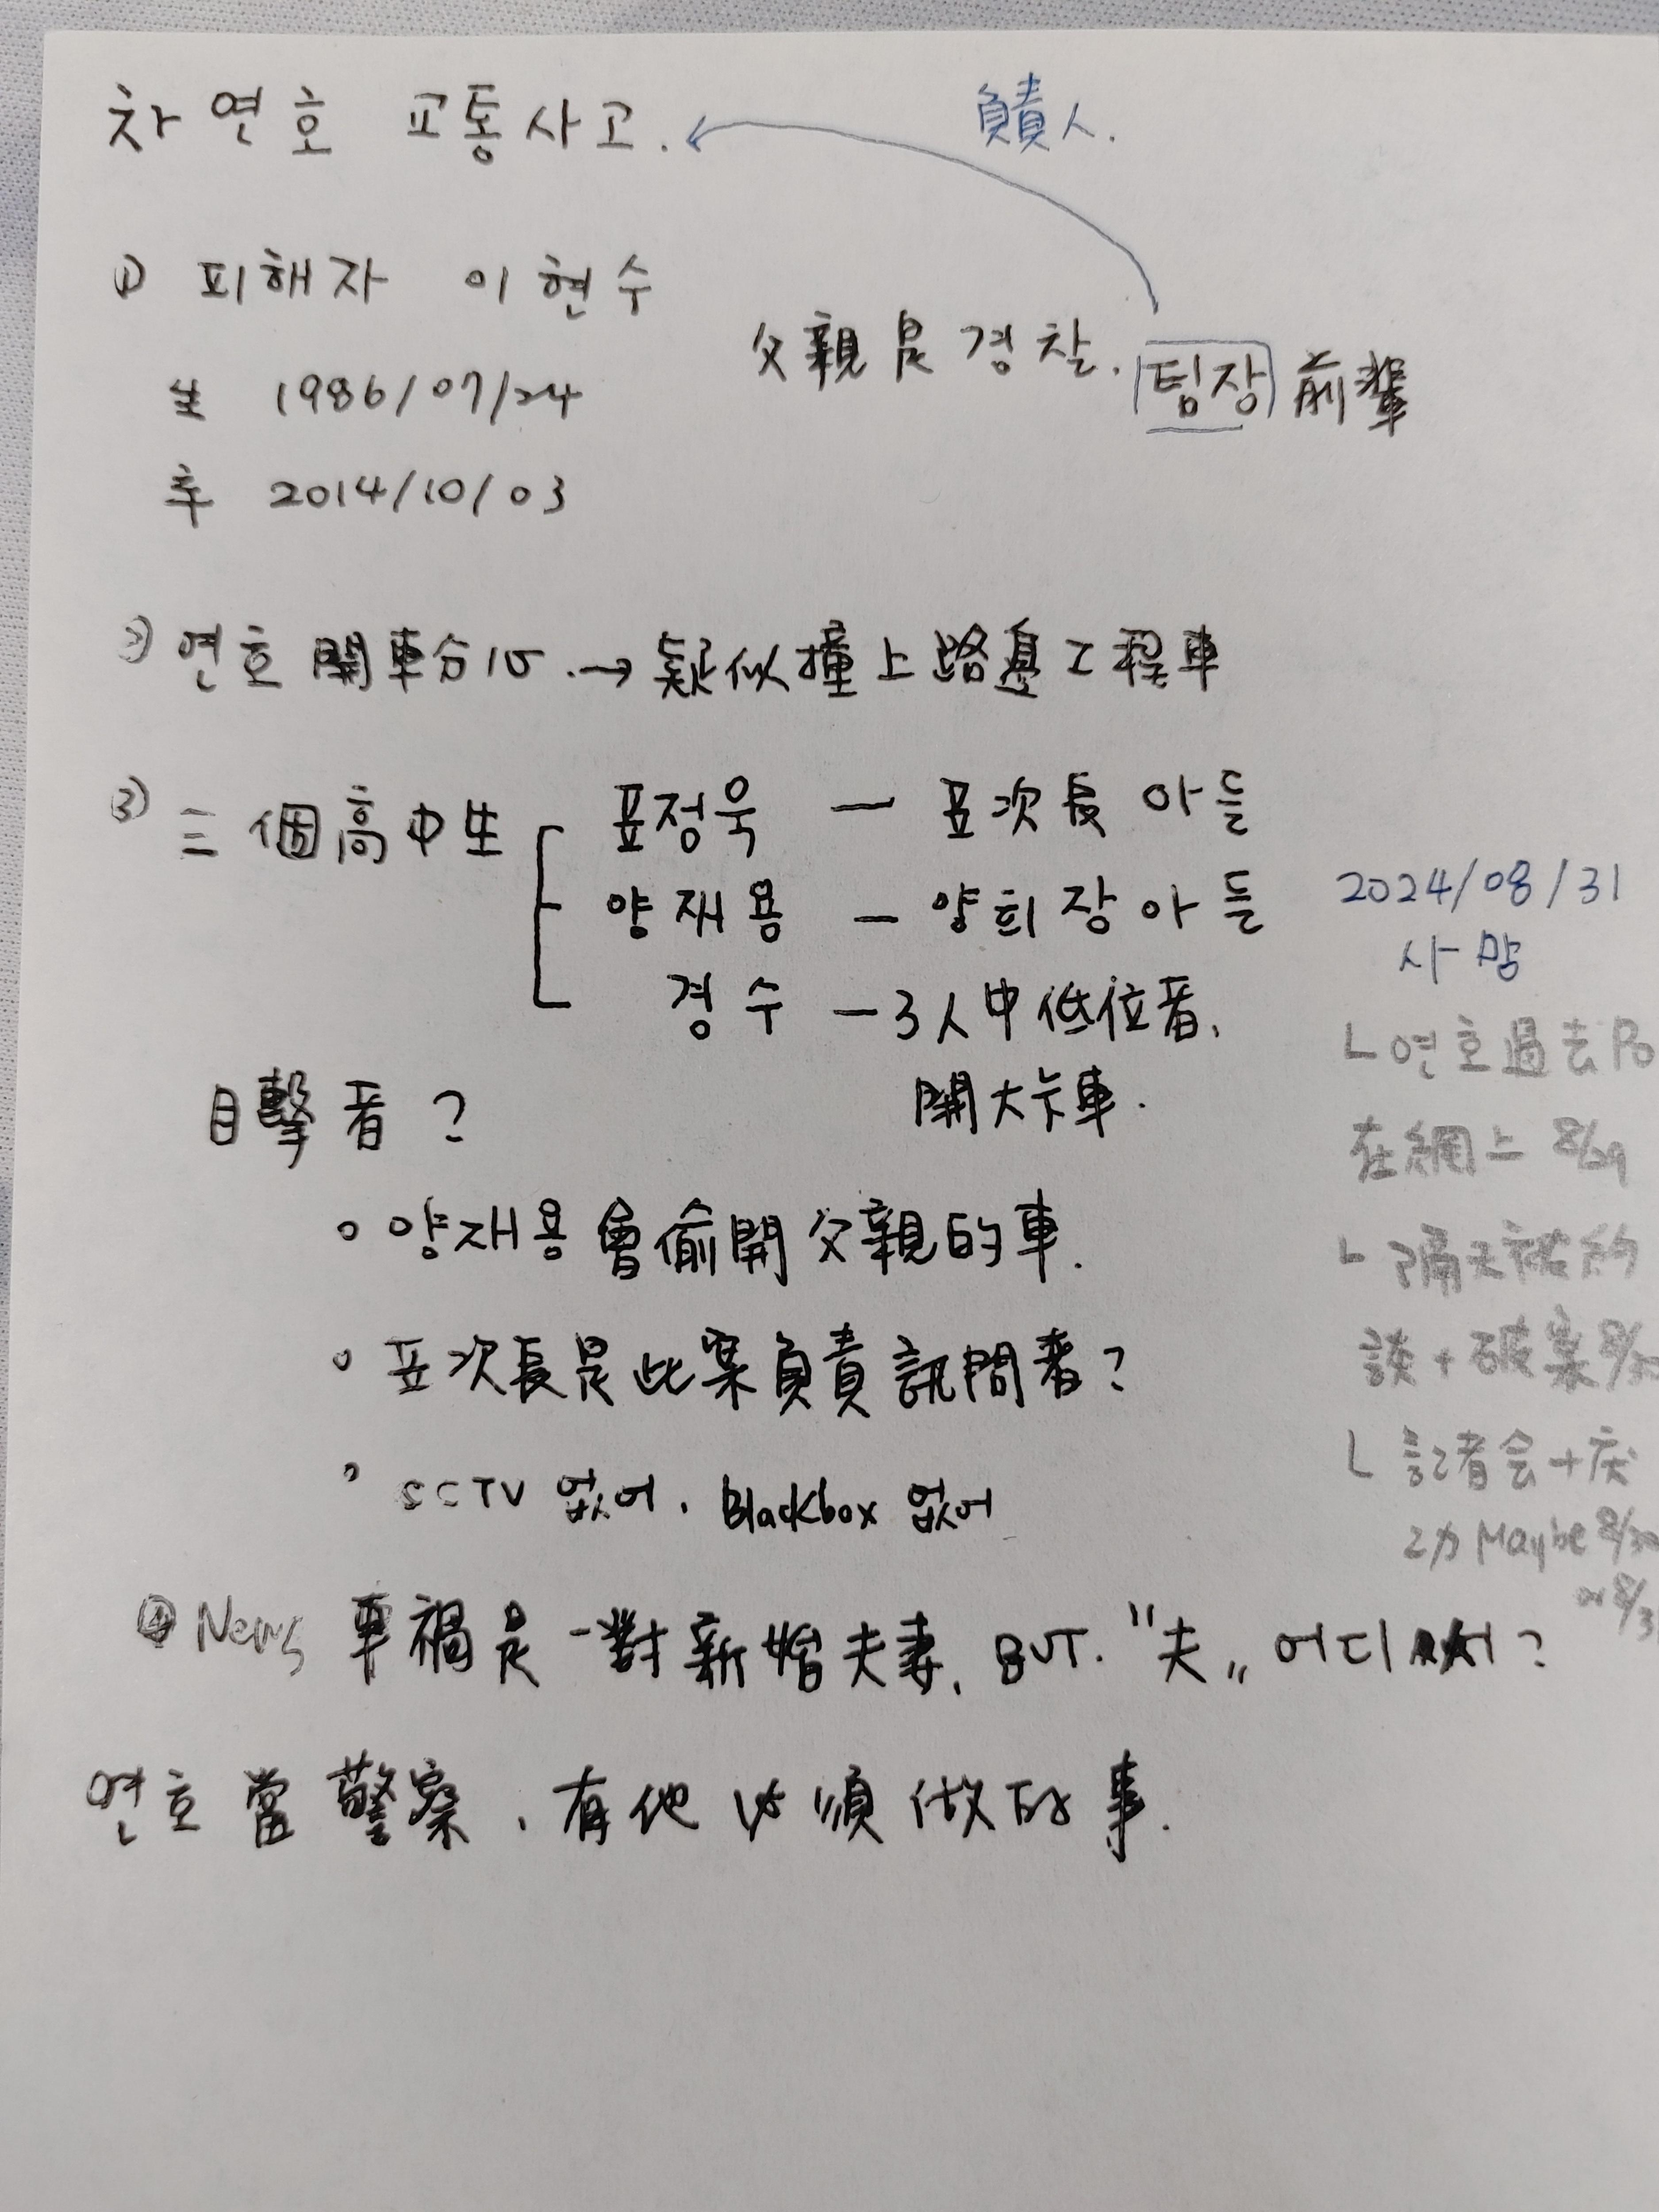 차연호 교통사고.
負責人.
① 피해자 이현수
父親是경찰. 팀장 前輩
生 1986/07/24
卒 2014/10/03
② 연호 開車分心 → 疑似撞上路邊工程車
③ 三個高中生
표정욱 — 표次長 아들
양재용 — 양회장 아들
경수 — 3人中低位者.
開大卡車.
2024/08/31
사망
目擊者?
연호過去Po
在網上 8/29
隔天被約
談+破案 8/30
記者会+庆
功 Maybe 8/30
or 8/31
양재용會偷開父親的車.
표次長是此案負責訊問者?
CCTV 없어. Blackbox 없어
④ News 車禍是一對新婚夫妻. BUT. "夫" 어디 ?
연호當警察. 有他必須做的事.